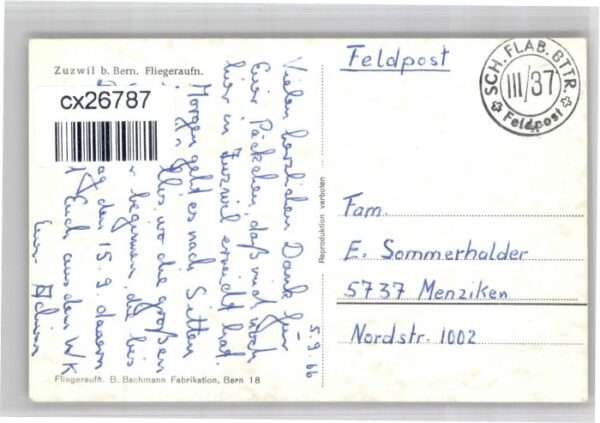 Zuzwil b. Bern. Fliegeraufn.
cx26787
5.9.66
Vielen herzlichen Dank für
Euer Päckchen, daß mich noch
hier in Zuzwil erreicht hat.
Morgen geht es nach Sitten
Wallis wo die großen
beginnen, die bis
ag den 15.9. dauern
Euch aus dem WK
Euer
Fliegeraufn. B. Bachmann Fabrikation, Bern 18
Reproduktion verboten
Feldpost
SCH. FLAB. BTTR.
III/37
Feldpost
Fam.
E. Sommerhalder
5737 Menziken
Nordstr. 1002